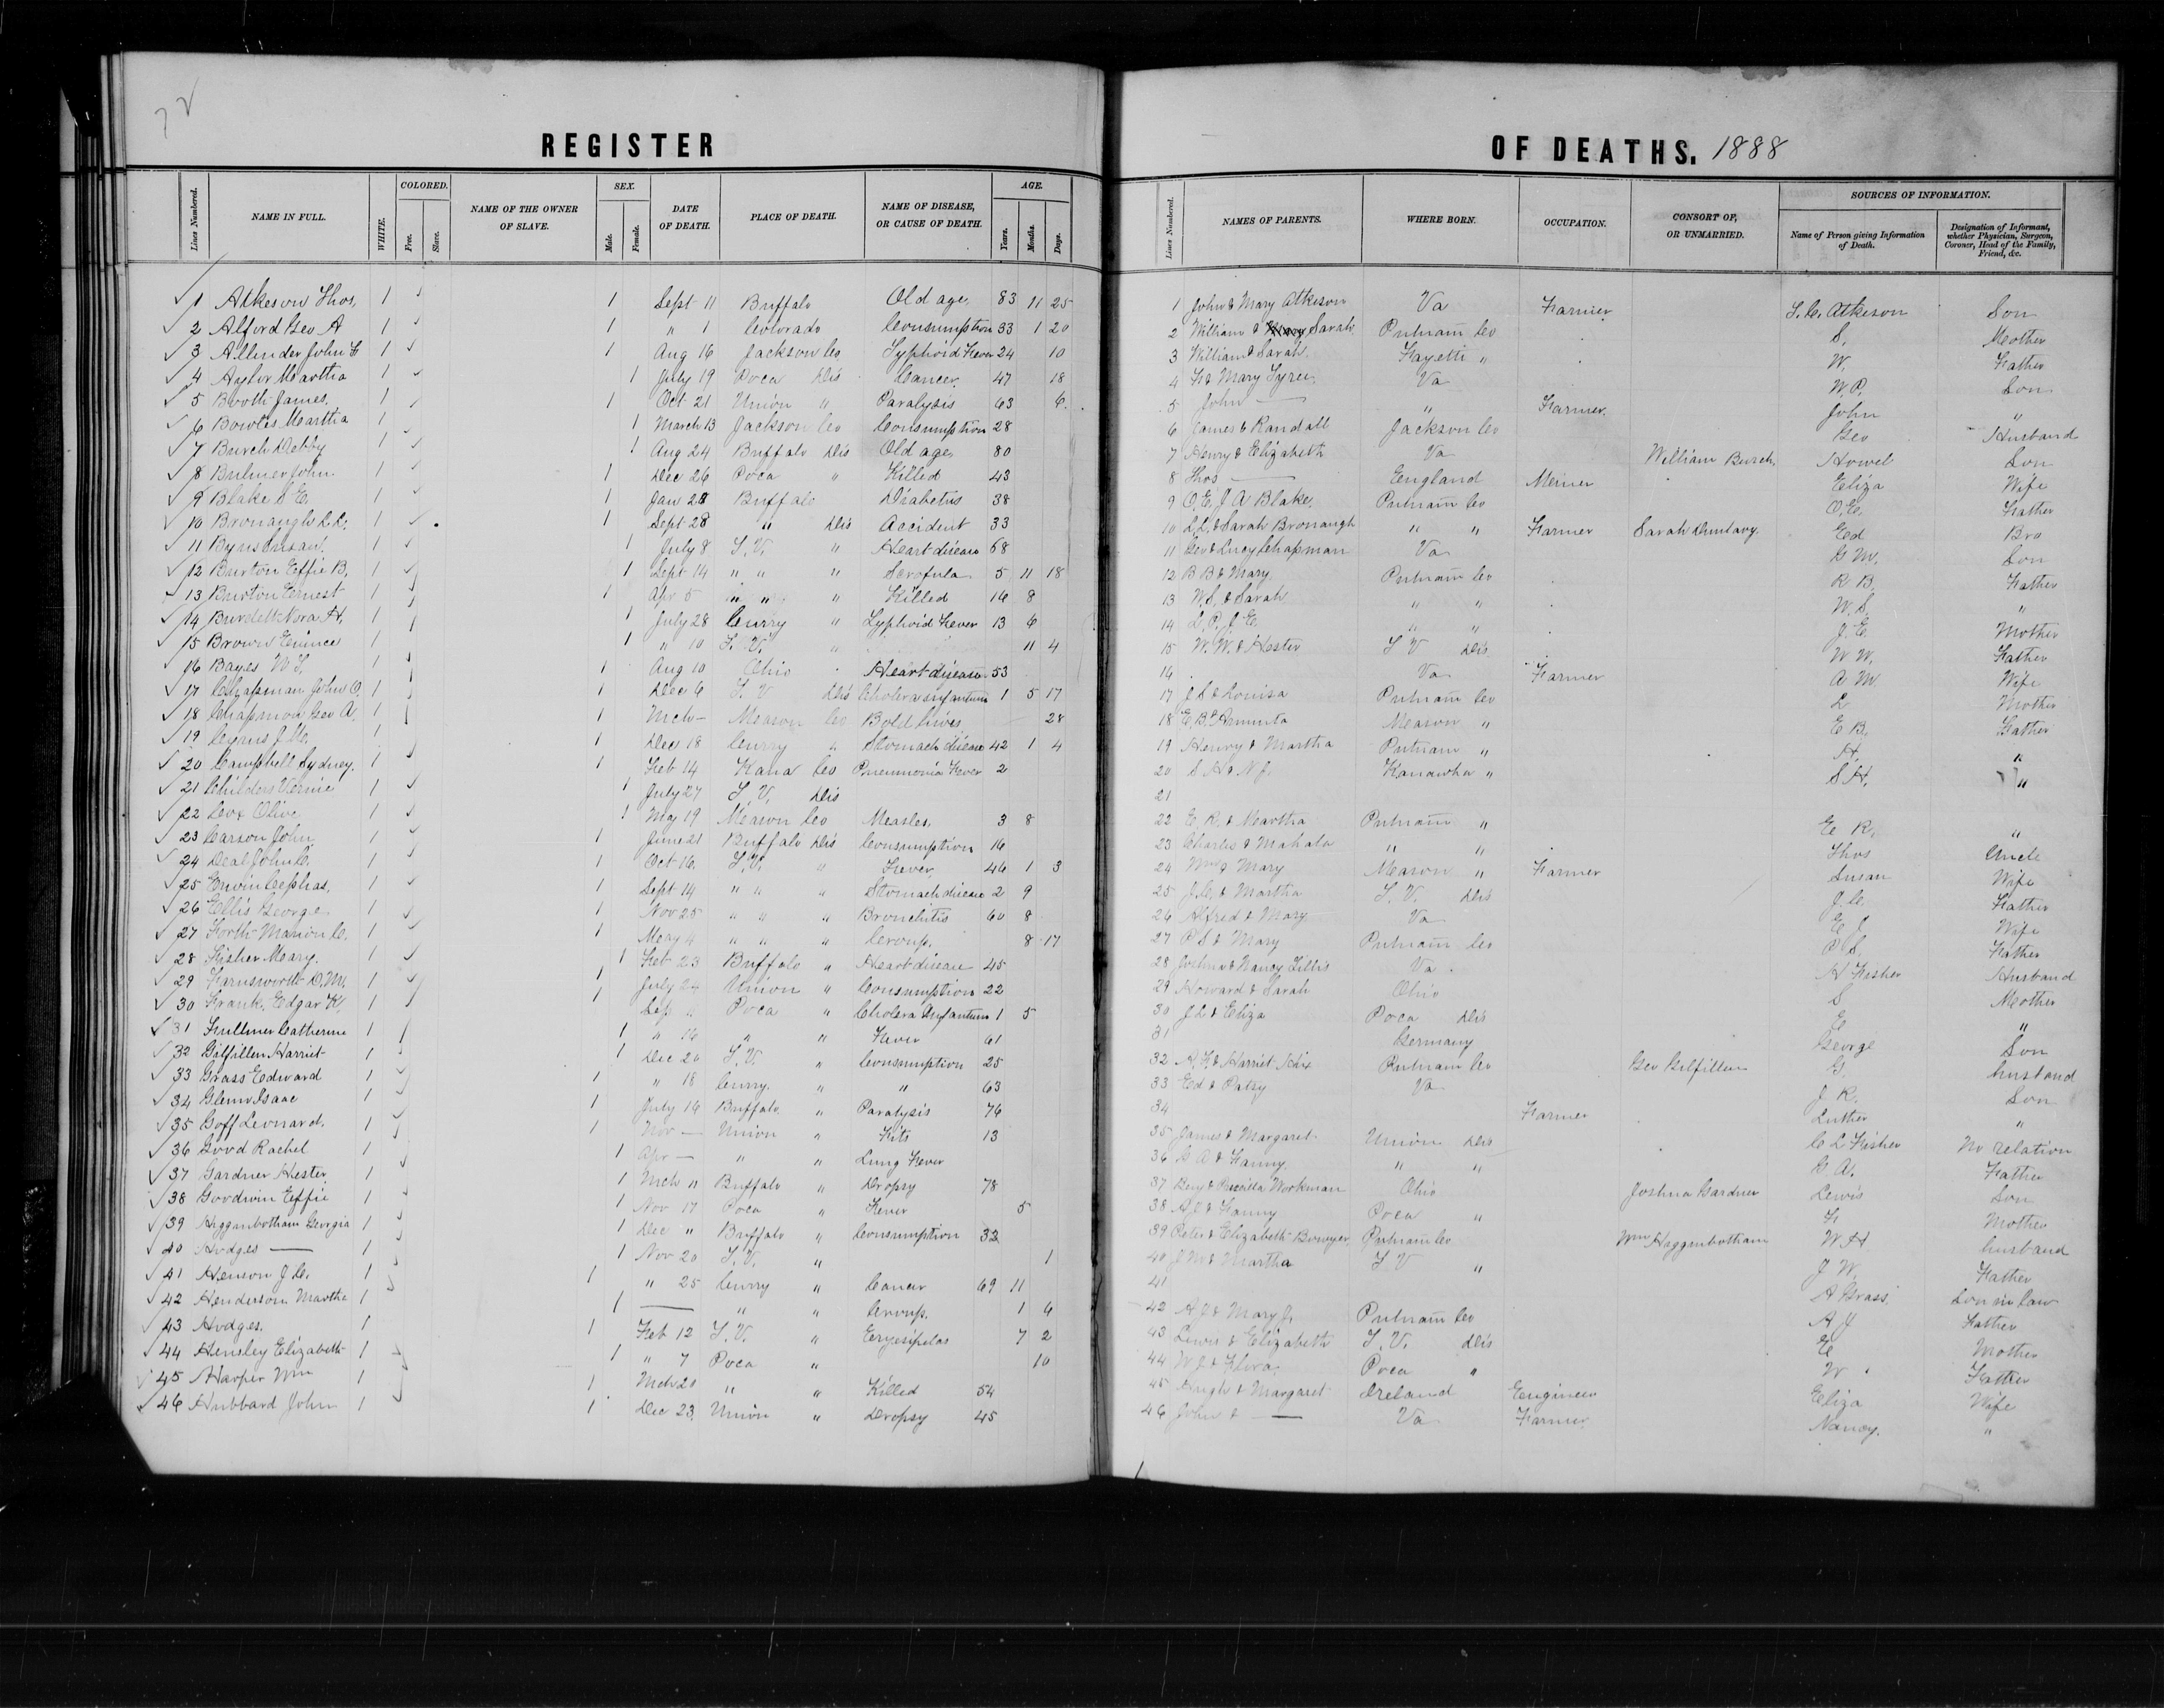 72
REGISTER
Lines Numbered. NAME IN FULL. WHITE. COLORED. Free. Slave. NAME OF THE OWNER OF SLAVE. SEX. Male. Female. DATE OF DEATH. PLACE OF DEATH. NAME OF DISEASE, OR CAUSE OF DEATH. AGE. Years. Months. Days.
1 Atkeson Thos. 1 1 Sept 11 Buffalo Old age 83 11 25
2 Alford Geo A 1 1 " 1 Colorado Consumption 33 1 20
3 Allinder John 1 1 Aug 16 Jackson Co Typhoid Fever 24 10
4 Martha 1 1 July 19 Poca Dis Cancer 47 18
5 Booth James. 1 1 Oct 21 Union " Paralysis 63 6
6 Bowles Martha 1 1 March 13 Jackson Co Consumption 28
7 Burch Debby 1 1 Aug 24 Buffalo Dis Old age 80
8 Bulmer John 1 1 Dec 26 Poca " Killed 43
9 Blake S E. 1 1 Jan 28 Buffalo Diabetis 38
10 Bronaugh L.L. 1 1 Sept 28 " Dis Accident 33
11 Byrns Susan. 1 1 July 8 T.V. " Heart disease 68
12 Burton Effie B. 1 1 Sept 14 " " " Scrofula 5 11 18
13 Burton Ernest 1 1 Apr 5 " " " Killed 16 8
14 Burdett Nora A. 1 1 July 28 Curry " Typhoid Fever 13 6
15 Brown Eunice 1 1 " 10 T.V. " 11 4
16 Bayes 1 1 Aug 10 Ohio Heart disease 53
17 Chapman John O. 1 1 Dec 6 T V Dis Cholera infantum 1 5 17
18 Chapman Geo A. 1 1 Mch — Meason Co Bold hives 28
19 Cyrus J.M. 1 1 Dec 18 Curry " Stomach disease 42 1 4
20 Campbell Sydney. 1 1 Feb 14 Kana Co Pneumonia Fever 2
21 Childers Vernie 1 1 July 27 T.V. Dis
22 Cox Olive 1 1 May 19 Meason Co Measles 3 8
23 Carson John 1 1 June 21 Buffalo Dis Consumption 16
24 Deal John C. 1 1 Oct 16. T.V. " Fever 46 1 3
25 Erwin Cephas. 1 1 Sept 14 " " " Stomach disease 2 9
26 Ellis George 1 1 Nov 25 " " " Bronchitis 60 8
27 Forth Marion C. 1 1 May 4 " " " Croup. 8 17
28 Fisher Mary. 1 1 Feb 23 Buffalo " Heart disease 45
29 Farnsworth D.M. 1 1 July 24 Union " Consumption 22
30 Frank. Edgar 1 1 Sep " Poca " Cholera Infantum 1 5
31 Fullmer Catherine 1 1 " 16 " " Fever 61
32 Gilfillen Harriet 1 1 Dec 20 T.V. " Consumption 25
33 Grass Edward 1 1 " 18 Curry " " 63
34 Glenn Isaac 1 1 July 16 Buffalo " Paralysis 76
35 Goff Leonard. 1 1 Nov — Union " Fits 13
36 Good Rachel 1 1 Apr — " " Lung Fever
37 Gardner Hester 1 1 Mch " Buffalo " Dropsy 78
38 Goodwin Effie 1 1 Nov 17 Poca " Fever 5
39 Higginbotham Georgia 1 1 Dec " Buffalo " Consumption 32
40 Hodges — 1 1 Nov 20 T.V. " 1
41 Henson J C. 1 1 " 25 Curry " Cancer 69 11
42 Henderson Martha 1 1 — " " Croup. 1 6
43 Hodges. 1 1 Feb 12 T.V. " Erysipelas 7 2
44 Hensley Elizabeth 1 1 " 7 Poca " 10
45 Harper Wm 1 1 Mch 20 " " Killed 54
46 Hubbard John 1 1 Dec 23. Union " Dropsy 45
OF DEATHS. 1888
Lines Numbered. NAMES OF PARENTS. WHERE BORN. OCCUPATION. CONSORT OF, OR UNMARRIED. SOURCES OF INFORMATION. Name of Person giving Information of Death. Designation of Informant, whether Physician, Surgeon, Coroner, Head of the Family, Friend, &c.
1 John & Mary Atkeson Va Farmer S.C. Atkeson Son
2 William & Mary Sarah Putnam Co S. Mother
3 William & Sarah. Fayette " W. Father
4 & Mary Tyree. Va W.P. Son
5 John — " Farmer. John "
6 James & Randall Jackson Co Geo Husband
7 Henry & Elizabeth Va William Burch Howel Son
8 Thos — England Miner Eliza Wife
9 O.E. J A Blake. Putnam Co O.E. Father
10 L.L. & Sarah Bronaugh " " Farmer Sarah Ed Bro
11 Geo & Lucy Chapman Va G M. Son
12 B B & Mary Putnam Co B B. Father
13 W.S. & Sarah " " W.S. "
14 L.P. J E. " " J.E. Mother
15 W.W. & Hester T V Dis W W. Father
16 Va Farmer A M Wife
17 J S & Louisa Putnam Co L Mother
18 E.B. & Meason " E B. Father
19 Henry & Martha Putnam " H. "
20 S H & N J. Kanawha " S H. "
21
22 E. R. & Martha Putnam " E R. "
23 Charles & Mahala " " Thos Uncle
24 Wm & Mary Meason " Farmer Susan Wife
25 J.C. & Martha T.V. Dis J.C. Father
26 Alfred & Mary Va E J Wife
27 P S & Mary Putnam Co P S. Father
28 Joshua & Nancy Va H Fisher Husband
29 Howard & Sarah Ohio S Mother
30 J L & Eliza Poca Dis E "
31 Germany George Son
32 & Harriet Putnam Co Geo Gilfillen G. husband
33 Ed & Patsy Va J R. Son
34 Farmer Luther "
35 James & Margaret Union Dis C L Fisher No relation
36 G A & Fanny " " G A. Father
37 Benj & Priscilla Workman Ohio Joshua Gardner Lewis Son
38 & Fanny Poca " F Mother
39 Peter & Elizabeth Bowyer Putnam Co Wm Higginbotham W H husband
40 J W & Martha T V " J W Father
41 A Grass Son in law
42 A J & Mary J. Putnam Co A J Father
43 Lewis & Elizabeth T.V. Dis E Mother
44 W J & Flora. Poca " W Father
45 Hugh & Margaret Ireland Engineer Eliza Wife
46 John & — Va Farmer Nancy. "